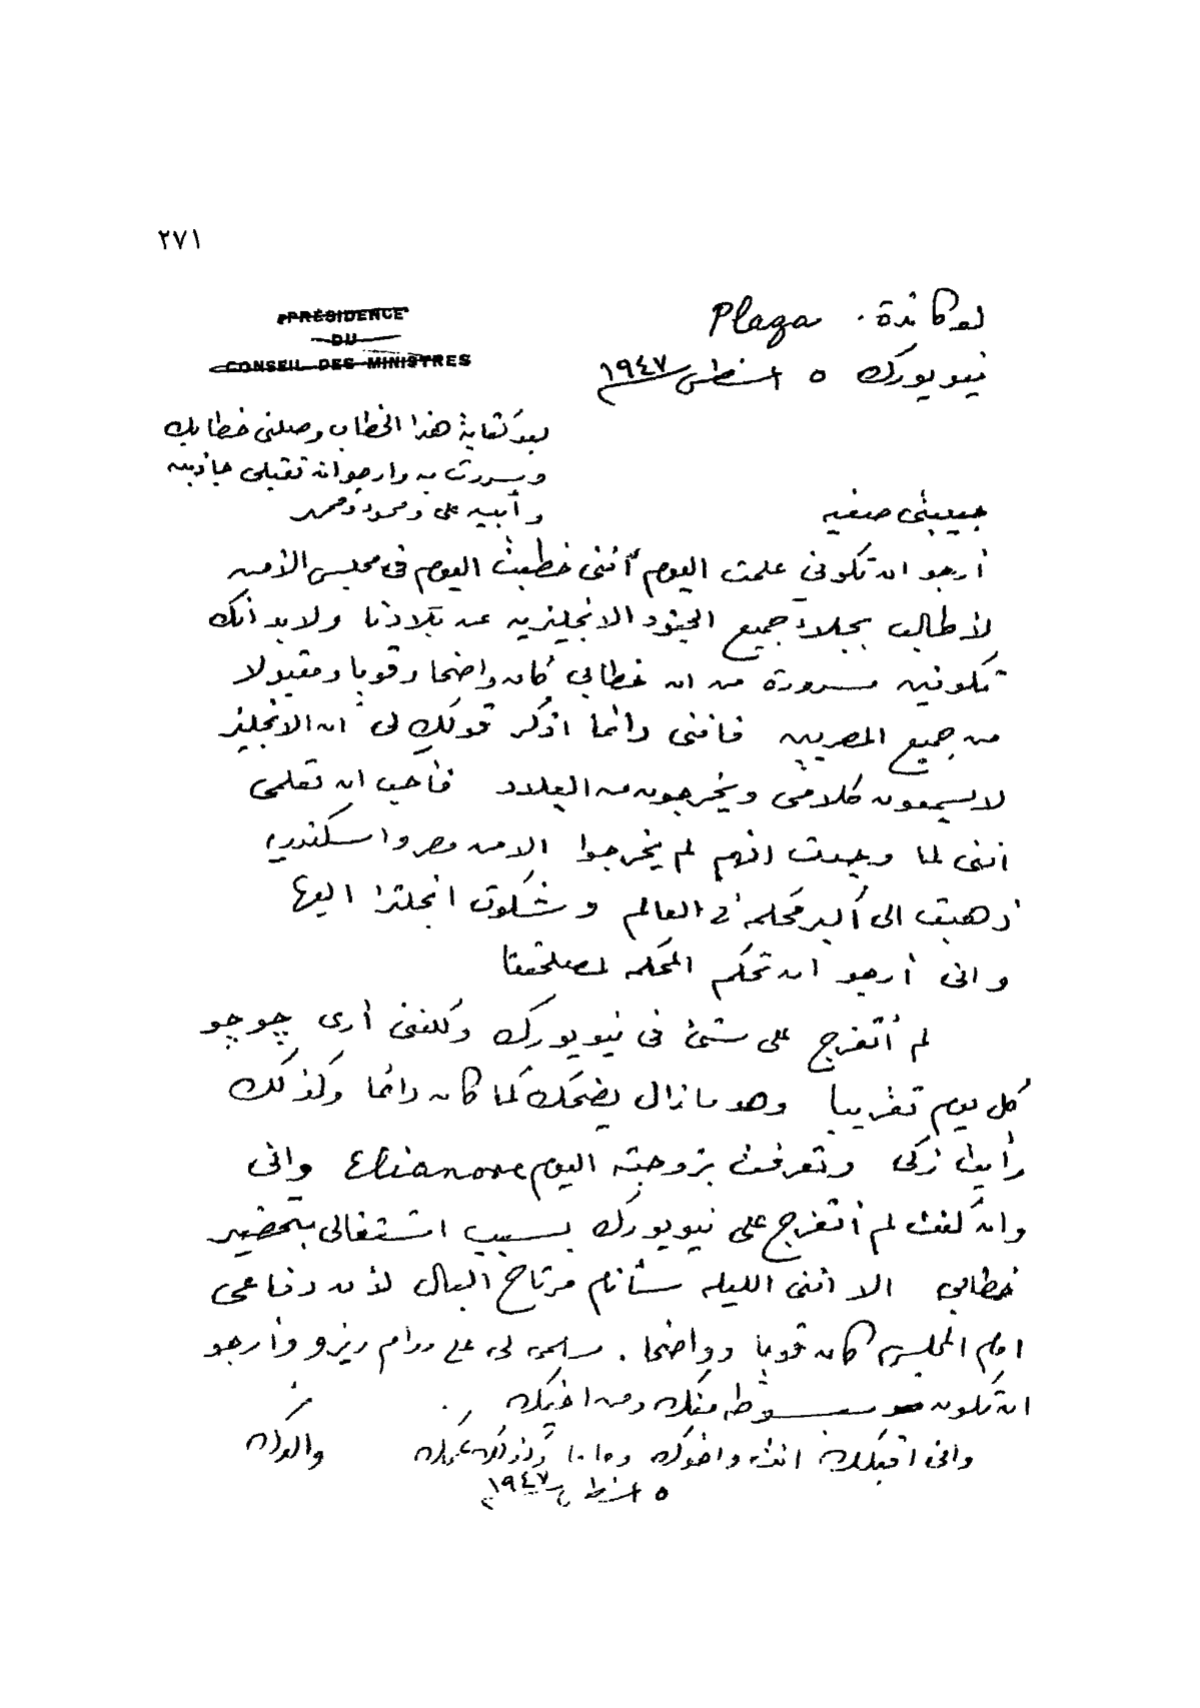 ٢٧١
لوكاندة Plaza
نيويورك ٥ اغسطس ١٩٤٧
PRÉSIDENCE
DU
CONSEIL DES MINISTRES
بعد كتابة هذا الخطاب وصلنى خطابك
وسررت به وارجو ان تقبلى جاذبيه
وأبيه على ومحمود ومحمد
حبيبتى صفيه
أرجو ان تكونى علمت اليوم أننى خطبت اليوم فى مجلس الأمن
لأطالب بجلاء جميع الجنود الانجليزيه عن بلادنا ولابد أنك
تكونين مسرورة من ان خطابى كان واضحا وقويا ومقبولا
من جميع المصريين فاننى دائما اذكر قولك لى ان الانجليز
لا يسمعون كلامى ويخرجون من البلاد فأحب ان تعلمى
اننى لما وجدت انهم لم يخرجوا الا من مصر واسكندريه
ذهبت الى أكبر محكمه فى العالم وشكوت انجلترا اليها
وانى أرجو ان تحكم المحكمه لمصلحتنا
لم أتفرج على شئ فى نيويورك ولكننى أرى چوچو
كل يوم تقريبا وهو ما زال يضحك كما كان دائما وكذلك
رأيت زكى وتعرفت بزوجته اليوم Elianore وانى
وان كنت لم أتفرج على نيويورك بسبب اشتغالى بتحضير
خطابى الا اننى الليله سأنام مرتاح البال لأن دفاعى
امام المجلس كان قويا وواضحا. سلمى لى على مدام ريزو وأرجو
ان تكون مبسوطه منك ومن اخيك
وانى اقبلك انت واخوك وماما وكذلك عمك والدك
٥ اغسطس ١٩٤٧